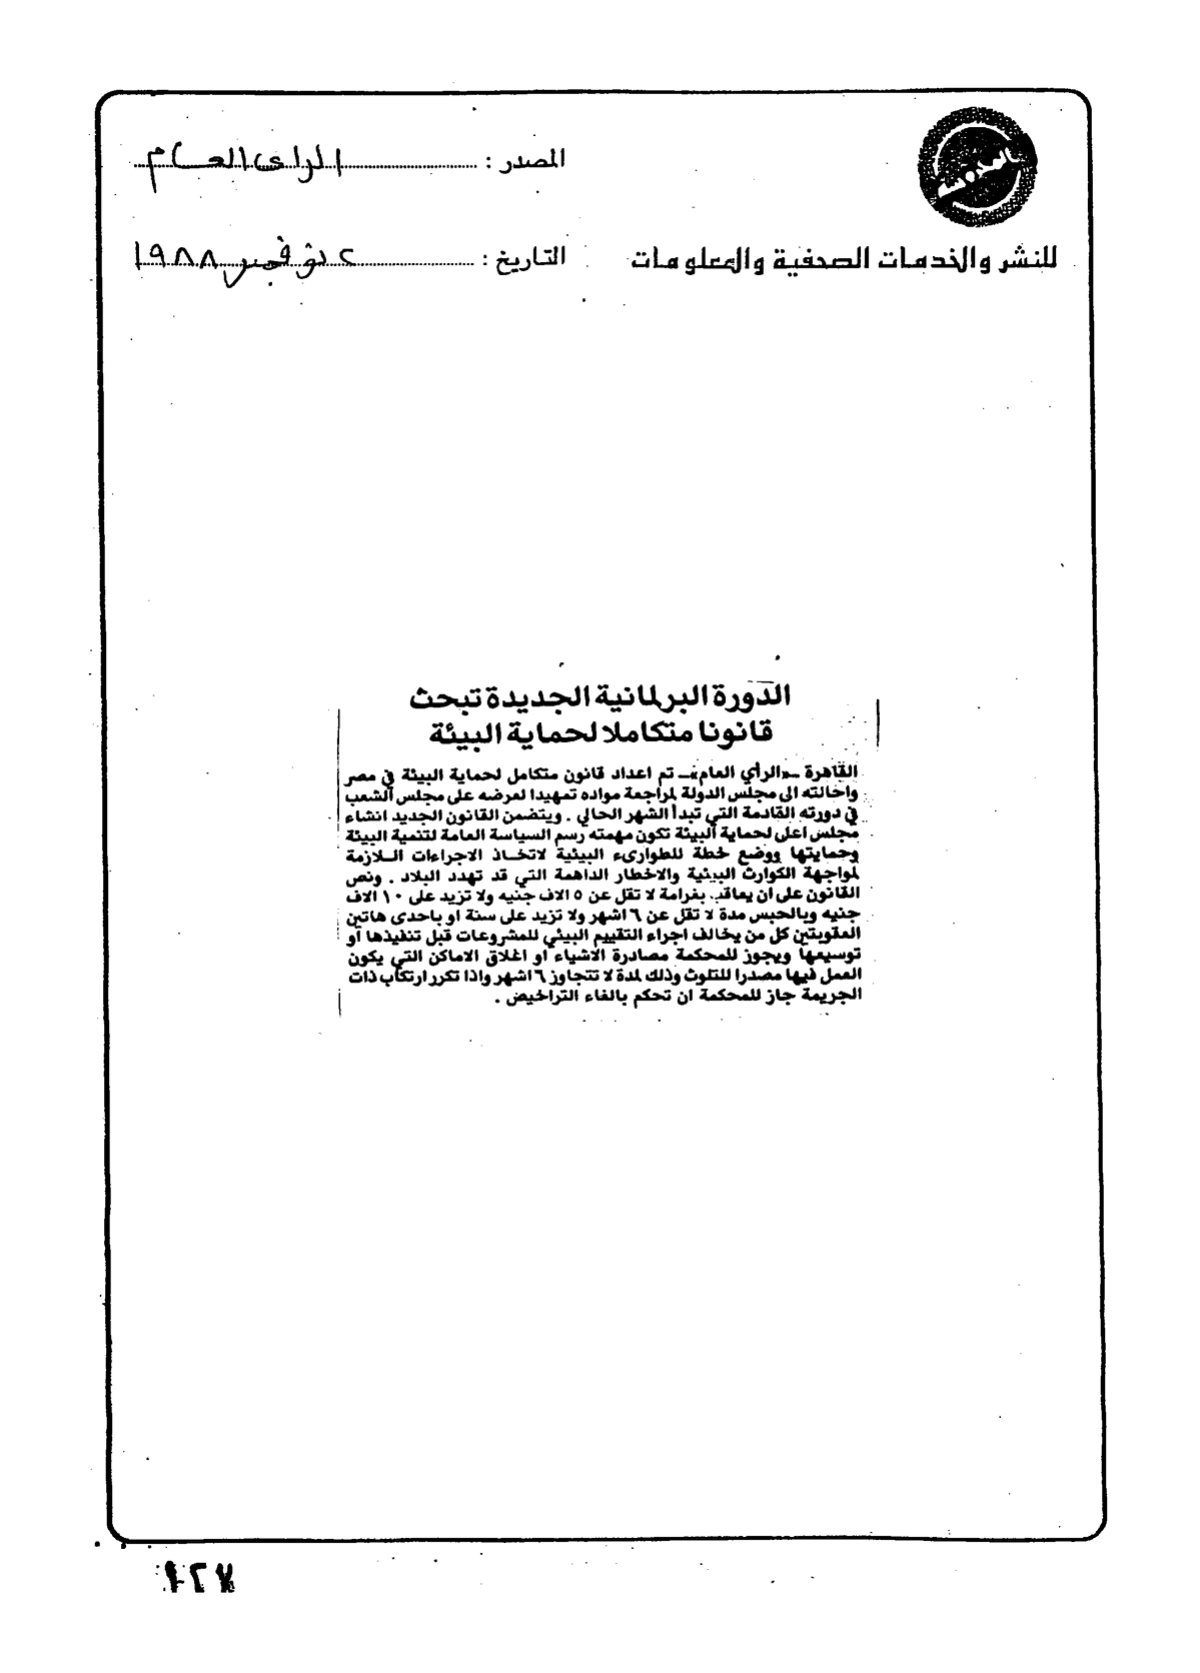 المصدر : الراى العام
للنشر والخدمات الصحفية والمعلومات
التاريخ : ٢ نوفمبر ١٩٨٨
الدورة البرلمانية الجديدة تبحث
قانونا متكاملا لحماية البيئة
القاهرة ـ «الرأي العام» ـ تم اعداد قانون متكامل لحماية البيئة في مصر
واحالته الى مجلس الدولة لمراجعة مواده تمهيدا لعرضه على مجلس الشعب
في دورته القادمة التي تبدأ الشهر الحالي . ويتضمن القانون الجديد انشاء
مجلس اعلى لحماية البيئة تكون مهمته رسم السياسة العامة لتنمية البيئة
وحمايتها ووضع خطة للطوارىء البيئية لاتخاذ الاجراءات اللازمة
لمواجهة الكوارث البيئية والاخطار الداهمة التي قد تهدد البلاد . ونص
القانون على ان يعاقب بغرامة لا تقل عن ٥ الاف جنيه ولا تزيد على ١٠ الاف
جنيه وبالحبس مدة لا تقل عن ٦ اشهر ولا تزيد على سنة او باحدى هاتين
العقوبتين كل من يخالف اجراء التقييم البيئي للمشروعات قبل تنفيذها او
توسيعها ويجوز للمحكمة مصادرة الاشياء او اغلاق الاماكن التي يكون
العمل فيها مصدرا للتلوث وذلك لمدة لا تتجاوز ٦ اشهر واذا تكرر ارتكاب ذات
الجريمة جاز للمحكمة ان تحكم بالغاء التراخيص .